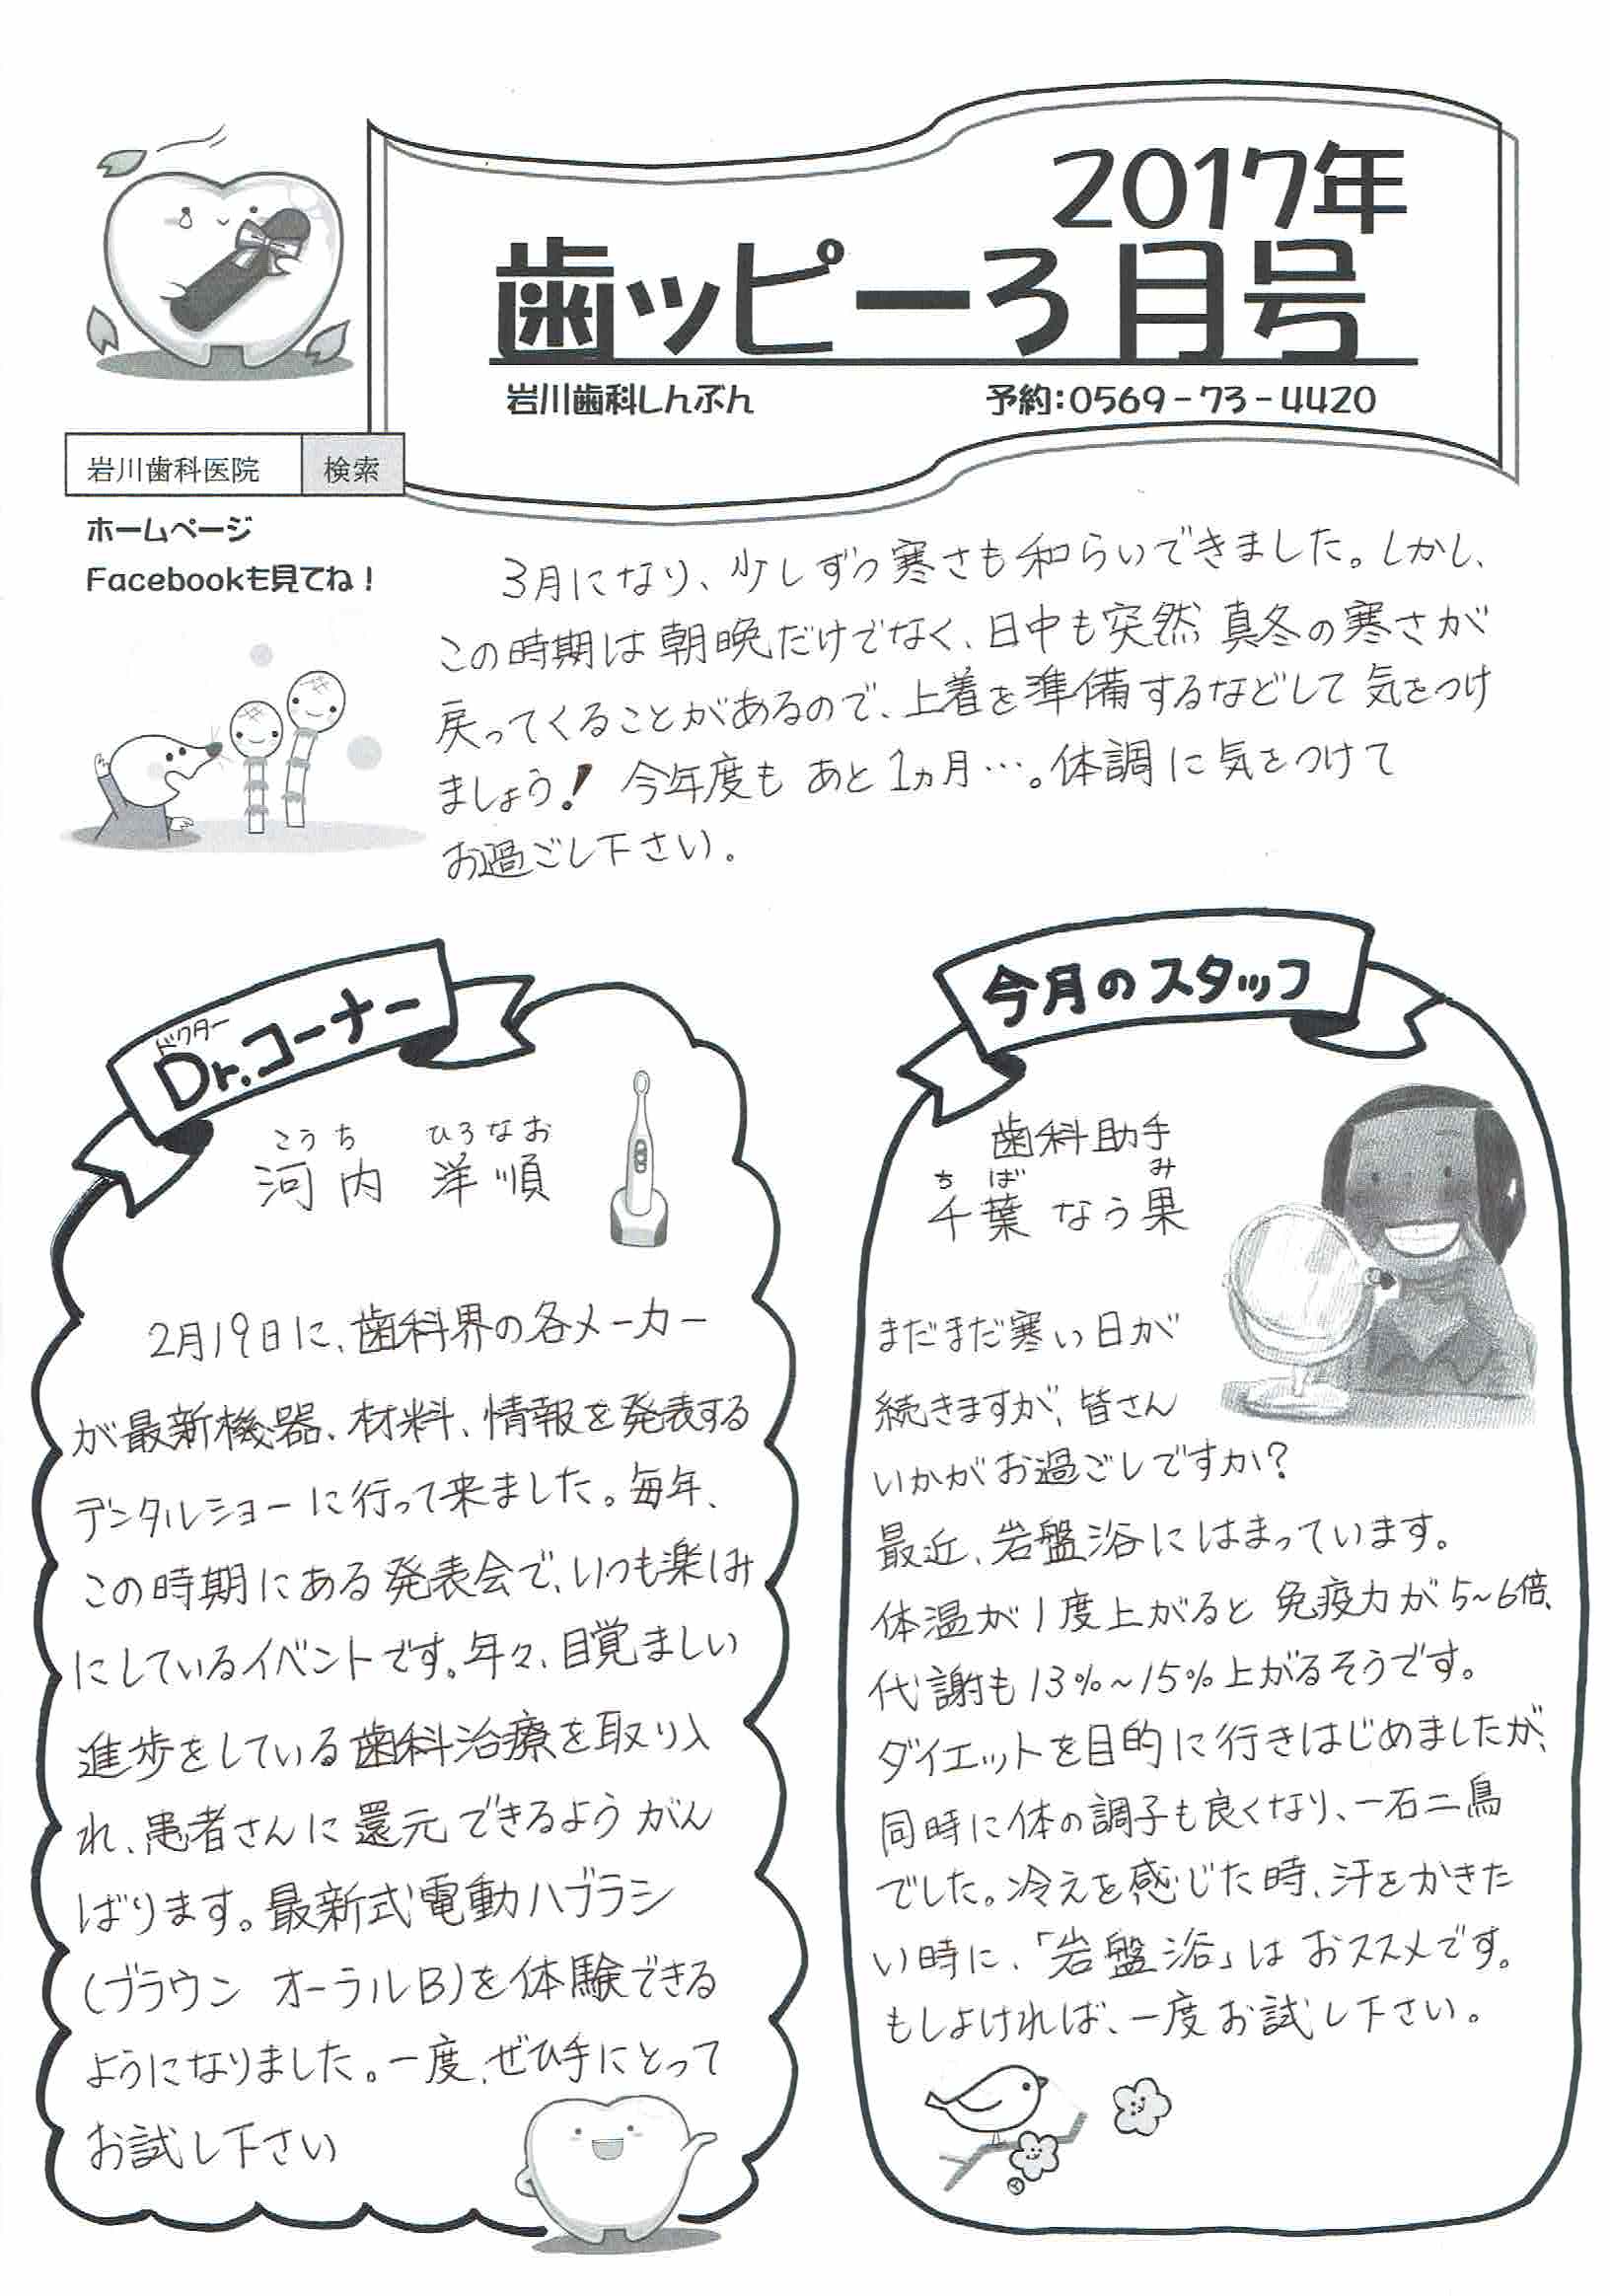 2017年
歯ッピー3月号
岩川歯科しんぶん
予約:0569-73-4420
岩川歯科医院 検索
ホームページ
Facebookも見てね!
3月になり、少しずつ寒さも和らいできました。しかし、
この時期は朝晩だけでなく、日中も突然真冬の寒さが
戻ってくることがあるので、上着を準備するなどして気をつけ
ましょう! 今年度もあと1ヵ月…。体調に気をつけて
お過ごし下さい。
ドクター
Dr.コーナー
こうち ひろなお
河内 洋順
2月19日に、歯科界の各メーカー
が最新機器、材料、情報を発表する
デンタルショーに行って来ました。毎年、
この時期にある発表会で、いつも楽しみ
にしているイベントです。年々、目覚ましい
進歩をしている歯科治療を取り入
れ、患者さんに還元できるようがん
ばります。最新式電動ハブラシ
(ブラウン オーラルB)を体験できる
ようになりました。一度、ぜひ手にとって
お試し下さい
今月のスタッフ
歯科助手
ちば み
千葉 なう果
まだまだ寒い日が
続きますが、皆さん
いかがお過ごしですか?
最近、岩盤浴にはまっています。
体温が1度上がると免疫力が5~6倍、
代謝も13%~15%上がるそうです。
ダイエットを目的に行きはじめましたが、
同時に体の調子も良くなり、一石二鳥
でした。冷えを感じた時、汗をかきた
い時に、「岩盤浴」はおススメです。
もしよければ、一度お試し下さい。